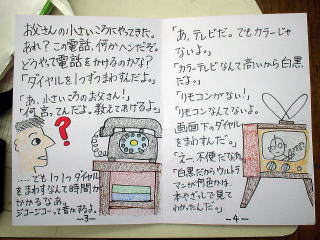 お父さんの小さいころにやってきた。
あれ?この電話、何かヘンだぞ。
どうやて電話をかけるのかな?
「ダイヤルを1つずつまわすんだよ。」
「あ、小さいころのお父さん!」
「何言ってんだよ。教えてあげるよ。」
?
‥‥でも1つ1つダイヤル
をまわすなんて時間が
かかるなあ。
ジーコジーコって音がするよ。
-3-
「あ、テレビだ。でもカラーじゃ
ないよ。」
「カラーテレビなんて高いから白黒
だよ。」
「リモコンがない!」
「リモコンなんてないよ。
画面下のダイヤル
をまわすんだ。」
「えー、不便だなあ。」
「白黒だからウルトラ
マンが何色かは、
本やざっしで見て
わかったんだ。」
-4-